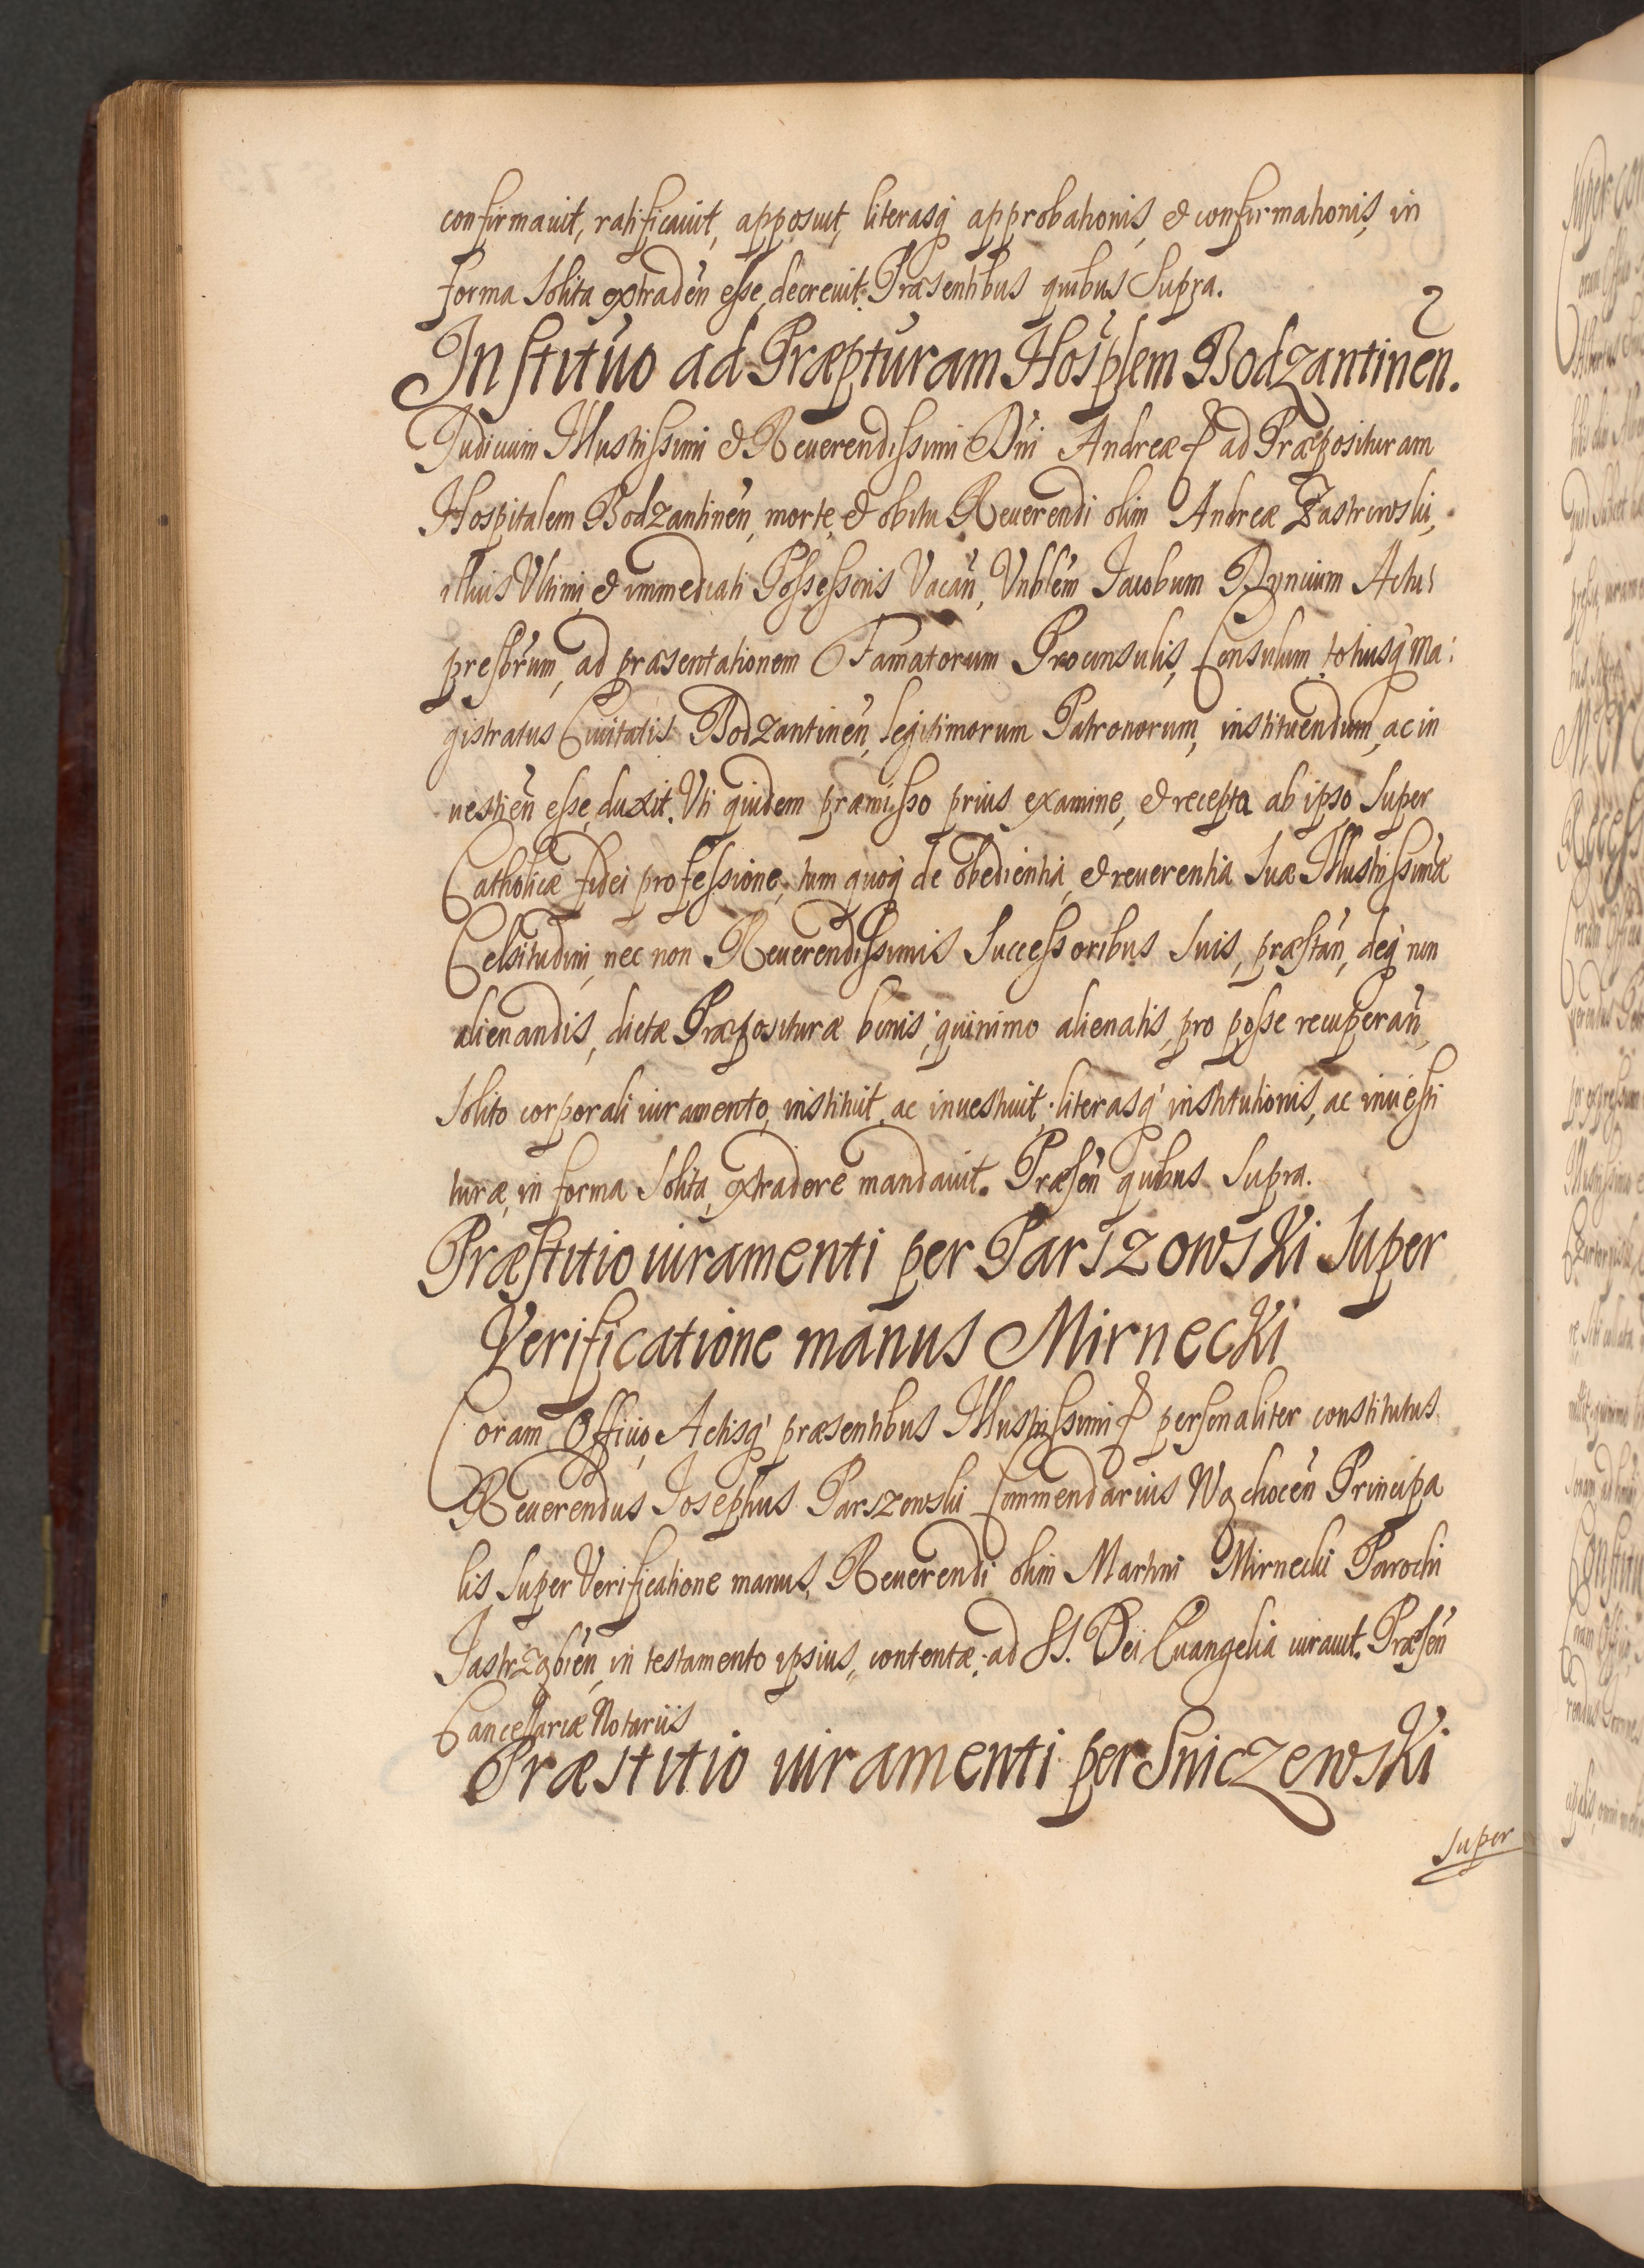 confirmauit, ratificauit, apposuit, literasq́ approbationis, & confirmationis, in
forma solita extradeñ esse, decreuit. Præsentibus quibus Supra.
Institu͠o ad Præpturam Hosp͠lem Bodzantineñ.
Judicium Illustrissimi & Reuerendissimi Dñi Andreæ ad Præposituram
Hospitalem Bodzantineñ, morte, & obitu Reuerendi olim Andreæ Zastrowski,
illius Vltimi, & immediati Possessoris Vacañ, Vnblem Jacobum Ryncium Actu
presbrum, ad præsentationem Famatorum Proconsulis, Consulum, totiusq́ Ma:
gistratus Ciuitatis Bodzantineñ, legitimorum Patronorum, instituendum, ac in
uestieñ esse, duxit. Vti quidem præmisso prius examine, & recepta ab ipso super
Catholicæ fidei professione, tum quoq́ de obedientia, & reuerentia Suæ Illustrissimæ
Celsitudini, nec non Reuerendissimis Successoribus Suis, præstañ, deq́ non
alienandis, dictæ Præposituræ bonis, quinimo alienatis, pro posse recuperañ,
solito corporali iuramento, instituit, ac inuestiuit, literasq́ institutionis, ac inuesti
turæ, in forma solita, extradere mandauit. Præseñ quibus Supra.
Præstitio iuramenti per Parszowski super
Verificatione manus Mirnecki
Coram Officio, Actisq́ præsentibus Illustrissimi personaliter constitutus
Reuerendus Josephus Parszowski Commendarius Wąchoceñ Principa
lis super Verificatione manus, Reuerendi olim Martini Mirnecki Parochi
Jastrząbieñ, in testamento ipsius, contentæ, ad SS. Dei Euangelia iurauit. Præseñ
Cancellariæ Notariis
Præstitio iuramenti per Sniczewski
super